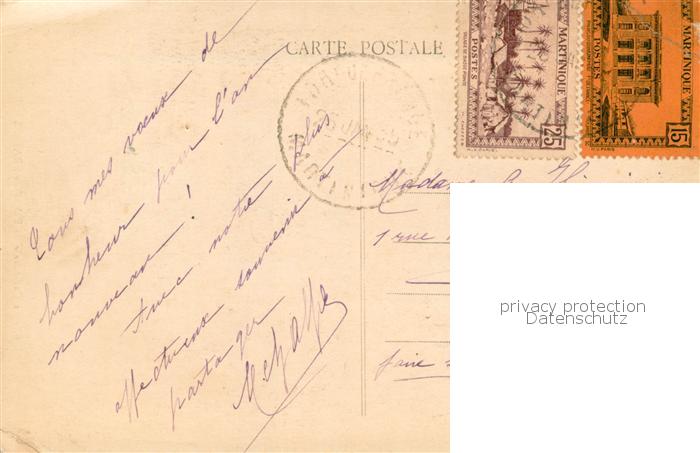 CARTE POSTALE
Tous mes vœux de
bonheur pour l'an
nouveau !
Avec notre plus
affectueux souvenir à
partager
MARTINIQUE
POSTES
25
MARTINIQUE
POSTES
15
Madame
1 rue
faire
privacy protection
Datenschutz